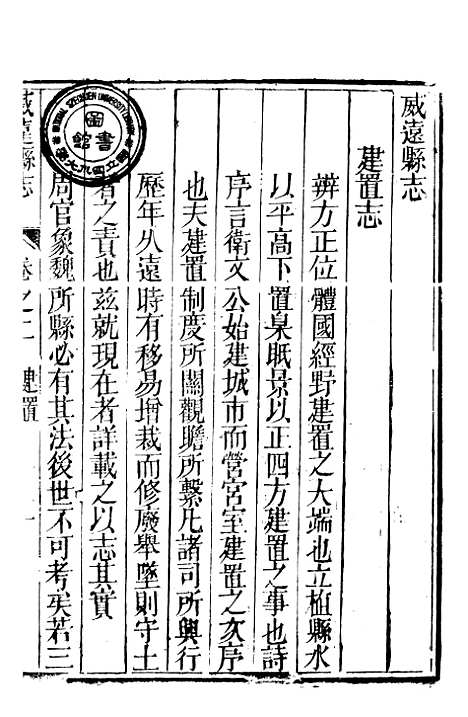 威遠縣志
建置志
辨方正位體國經野建置之大端也立植縣水
以平高下置臬眡景以正四方建置之事也詩
序言衛文公始建城市而營宮室建置之次序
也夫建置制度所關觀瞻所繫凡諸司所興行
歷年久遠時有移易增裁而修廢舉墜則守土
者之責也茲就現在者詳載之以志其實
周官象魏所縣必有其法後世不可考矣若三
威遠縣志 卷之二 建置 一
圖書館